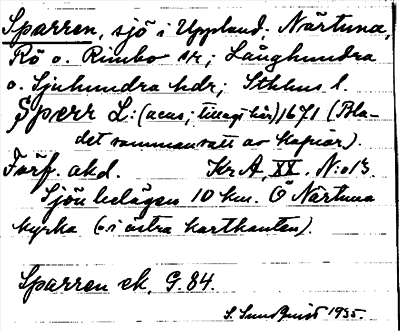 Sparren, sjö i Uppland. Närtuna,
Rö o. Rimbo snr; Långhundra
o. Sjuhundra hdr; Sthlms l.
Sperr L: (acas; tillagt här) 1671 (Bla-
det sammansatt av kopior).
Förf. okd. KrA, XX. N:o 13.
Sjön belägen 10 km. Ö Närtuna
kyrka (o. i östra kartkanten).
Sparren ek, G. 84.
S. Sundquist 1935.